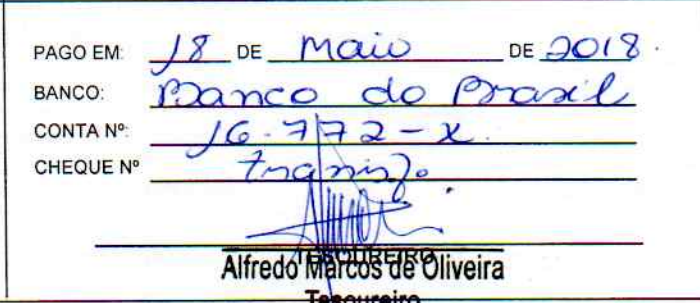 PAGO EM: 18 DE maio DE 2018.
BANCO: Banco do Brasil
CONTA Nº: 16.772-X.
CHEQUE Nº transf.
TESOUREIRO
Alfredo Marcos de Oliveira
Tesoureiro